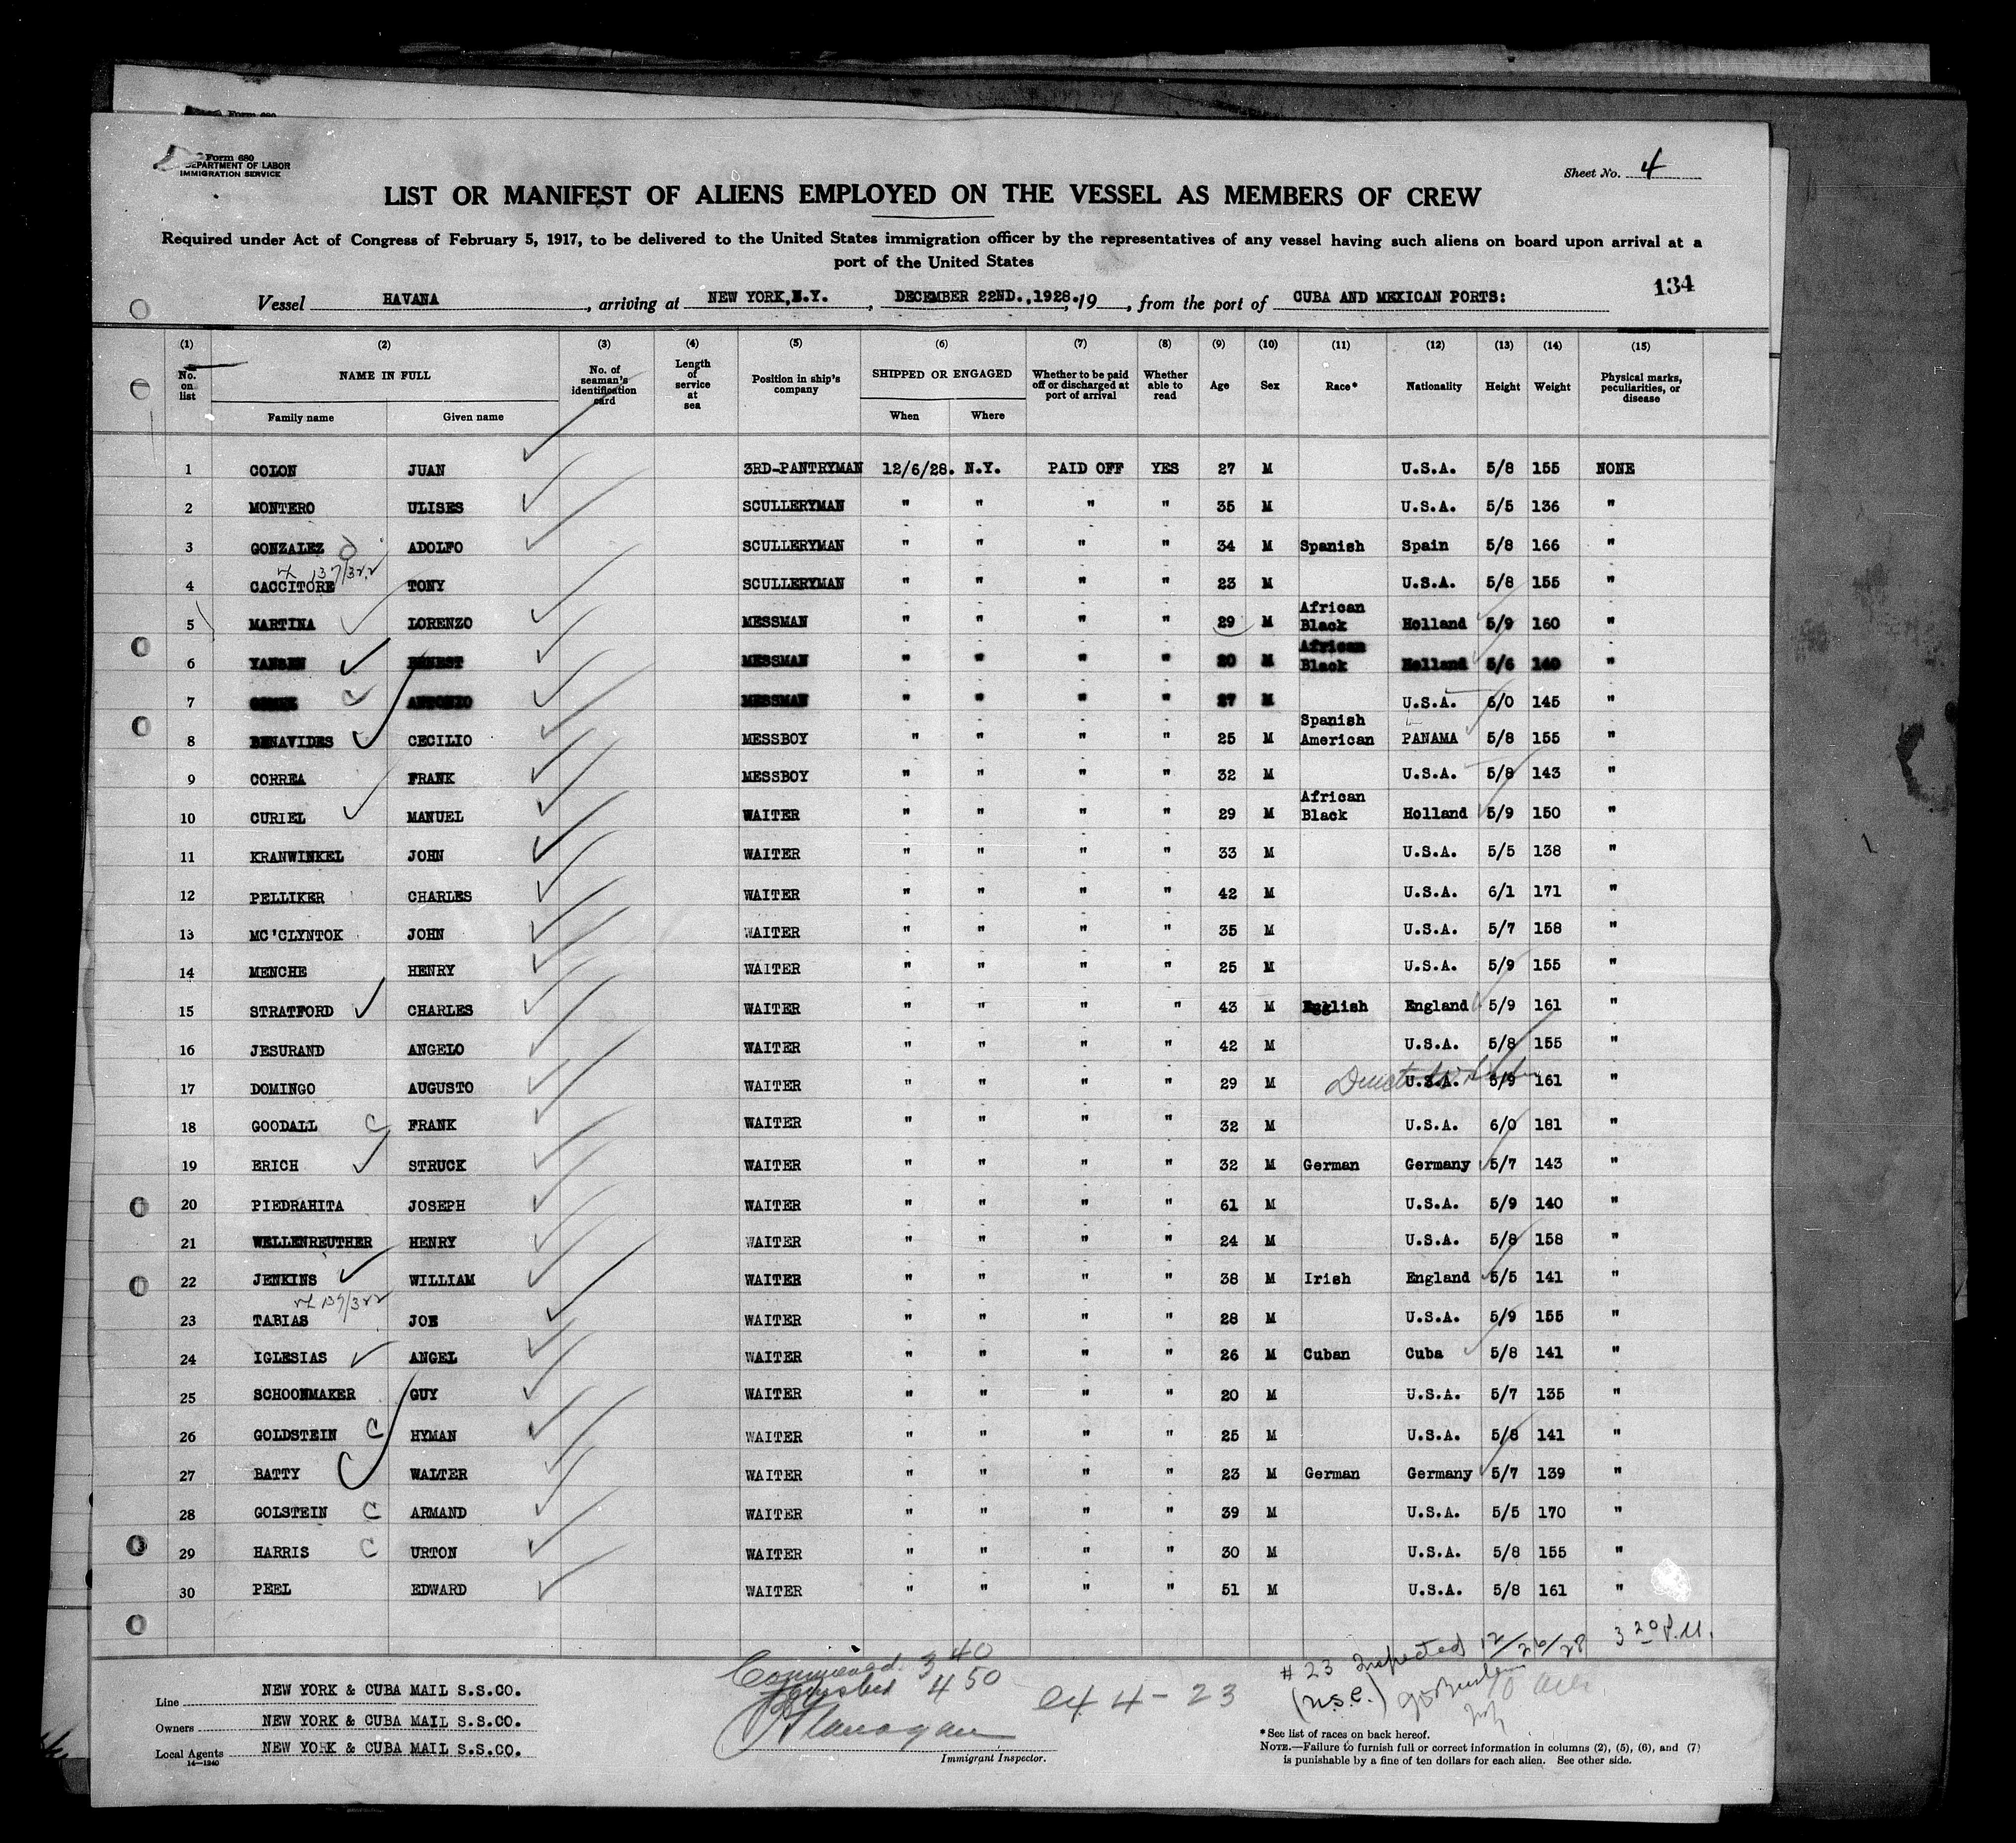 Form 680
DEPARTMENT OF LABOR
IMMIGRATION SERVICE
Sheet No. 4
LIST OR MANIFEST OF ALIENS EMPLOYED ON THE VESSEL AS MEMBERS OF CREW
Required under Act of Congress of February 5, 1917, to be delivered to the United States immigration officer by the representatives of any vessel having such aliens on board upon arrival at a
port of the United States
134
Vessel HAVANA, arriving at NEW YORK, N.Y., DECEMBER 22ND.,1928., 19, from the port of CUBA AND MEXICAN PORTS:
(1) (2) (3) (4) (5) (6) (7) (8) (9) (10) (11) (12) (13) (14) (15)
No. on list NAME IN FULL Family name Given name No. of seaman's identification card Length of service at sea Position in ship's company SHIPPED OR ENGAGED When Where Whether to be paid off or discharged at port of arrival Whether able to read Age Sex Race* Nationality Height Weight Physical marks, peculiarities, or disease
1 COLON JUAN 3RD-PANTRYMAN 12/6/28. N.Y. PAID OFF YES 27 M U.S.A. 5/8 155 NONE
2 MONTERO ULISES SCULLERYMAN " " " " 35 M U.S.A. 5/5 136 "
3 GONZALEZ ADOLFO SCULLERYMAN " " " " 34 M Spanish Spain 5/8 166 "
4 CACCITORE TONY SCULLERYMAN " " " " 23 M U.S.A. 5/8 155 "
5 MARTINA LORENZO MESSMAN " " " " 29 M African Black Holland 5/9 160 "
6 YANSEN ERNEST MESSMAN " " " " 20 M African Black Holland 5/6 140 "
7 GOMEZ ANTONIO MESSMAN " " " " 27 M U.S.A. 6/0 145 "
8 BENAVIDES CECILIO MESSBOY " " " " 25 M Spanish American PANAMA 5/8 155 "
9 CORREA FRANK MESSBOY " " " " 32 M U.S.A. 5/8 143 "
10 CURIEL MANUEL WAITER " " " " 29 M African Black Holland 5/9 150 "
11 KRANWINKEL JOHN WAITER " " " " 33 M U.S.A. 5/5 138 "
12 PELLIKER CHARLES WAITER " " " " 42 M U.S.A. 6/1 171 "
13 MC'CLYNTOK JOHN WAITER " " " " 35 M U.S.A. 5/7 158 "
14 MENCHE HENRY WAITER " " " " 25 M U.S.A. 5/9 155 "
15 STRATFORD CHARLES WAITER " " " " 43 M English England 5/9 161 "
16 JESURAND ANGELO WAITER " " " " 42 M U.S.A. 5/8 155 "
17 DOMINGO AUGUSTO WAITER " " " " 29 M U.S.A. 5/9 161 "
18 GOODALL C FRANK WAITER " " " " 32 M U.S.A. 6/0 181 "
19 ERICH STRUCK WAITER " " " " 32 M German Germany 5/7 143 "
20 PIEDRAHITA JOSEPH WAITER " " " " 61 M U.S.A. 5/9 140 "
21 WELLENREUTHER HENRY WAITER " " " " 24 M U.S.A. 5/8 158 "
22 JENKINS WILLIAM WAITER " " " " 38 M Irish England 5/5 141 "
23 TABIAS JOE WAITER " " " " 28 M U.S.A. 5/9 155 "
24 IGLESIAS ANGEL WAITER " " " " 26 M Cuban Cuba 5/8 141 "
25 SCHOONMAKER GUY WAITER " " " " 20 M U.S.A. 5/7 135 "
26 GOLDSTEIN C HYMAN WAITER " " " " 25 M U.S.A. 5/8 141 "
27 BATTY WALTER WAITER " " " " 23 M German Germany 5/7 139 "
28 GOLSTEIN C ARMAND WAITER " " " " 39 M U.S.A. 5/5 170 "
29 HARRIS C URTON WAITER " " " " 30 M U.S.A. 5/8 155 "
30 PEEL EDWARD WAITER " " " " 51 M U.S.A. 5/8 161 "
3 20 P.M.
#23 Inspected 12/26/28
(U.S.C.)
Commenced 3 40
Finished 4 50
Flanagan
4 - 23
Immigrant Inspector.
Line NEW YORK & CUBA MAIL S.S.CO.
Owners NEW YORK & CUBA MAIL S.S.CO.
Local Agents NEW YORK & CUBA MAIL S.S.CO.
14—1240
*See list of races on back hereof.
NOTE.—Failure to furnish full or correct information in columns (2), (5), (6), and (7)
is punishable by a fine of ten dollars for each alien. See other side.